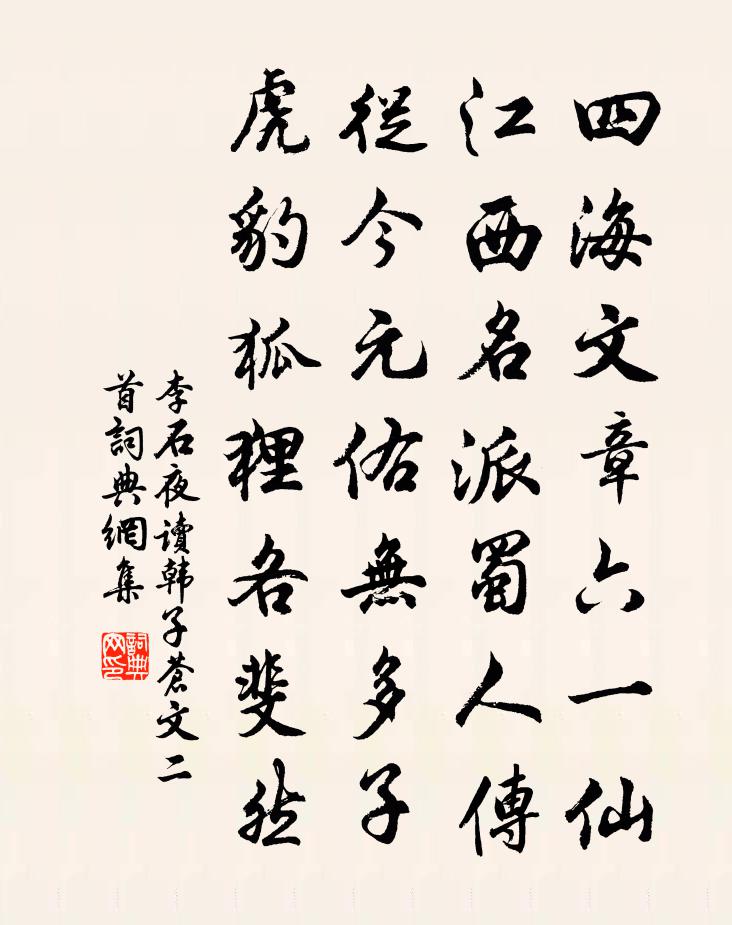 四海文章六一仙
江西名派蜀人傳
從今元佑無多子
虎豹狐狸各斐然
李石夜讀韩子蒼文二
首詞典網集
詞典网印